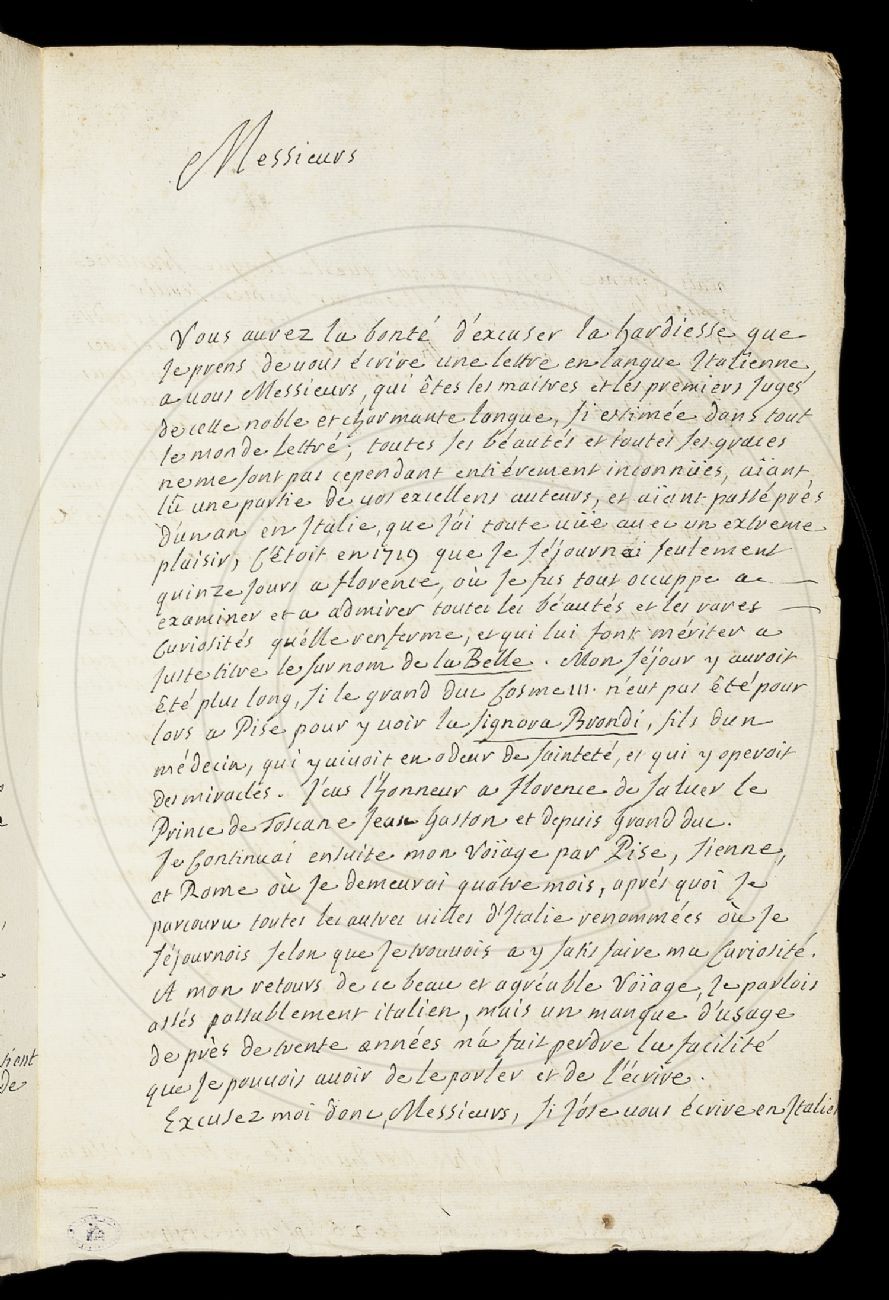 Messieurs
Vous aurez la bonté d'éxcuser la hardiesse que
Je prens de vous écrire une lettre en langue Italienne,
a vous Messieurs, qui êtes les maitres et les premiers Juges
de cette noble et charmante langue, si estimée dans tout
le monde lettré; toutes ses béautés et toutes ses graces
ne me sont pas cependant entiérement inconnües, aïant
lû une partie de vos excellens auteurs, et aïant passé prés
d'un an en Italie, que j'ai toute vüe avec un extreme
plaisir, C'étoit en 1719 que Je séjournai seulement
quinze Jours a florence, où Je fus tout occuppe a
examiner et a admirer toutes les béautés et les rares
Curiosités qu'elle renferme, et qui lui font mériter a
Juste titre le surnom de la Belle. Mon séjour y auroit
été plus long, si le grand duc Cosme III. n'eut pas été pour
lors a Pise pour y voir la signora Brondi, fils d'un
médecin, qui y vivoit en odeur de sainteté, et qui y operoit
des miracles. J'eus l'honneur a florence de saluer le
Prince de Toscane Jean Gaston et depuis Grand duc.
Je Continuai ensuite mon Voïage par Pise, Sienne,
et Rome où Je demeurai quatre mois, aprés quoi Je
parcouru toutes les autres villes d'Italie renommées où Je
séjournois selon que Je trouvois a y satisfaire ma Curiosité.
A mon retours de ce beau et agréable Voïage, Je parlois
assés passablement italien, mais un manque d'usage
de près de trente années m'a fait perdre la facilité
que Je pouvois avoir de le parler et de l'écrire.
Excusez moi donc, Messieurs, si J'óse vous écrire en Italie
tient
de